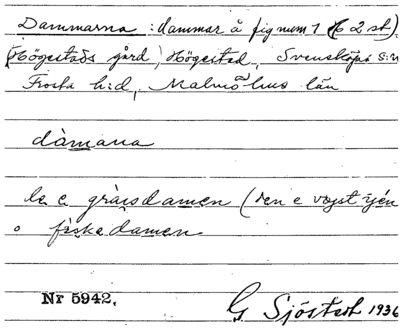 Dammarna : dammar å fig num 1 (2 st)
(Högestads gård), Högestad, Svensköps s:n
Frosta h:d, Malmöhus län
dàmana
le e gràisdamen (den e
o fiskedamen
Nr 5942.
G Sjöstedt 1936